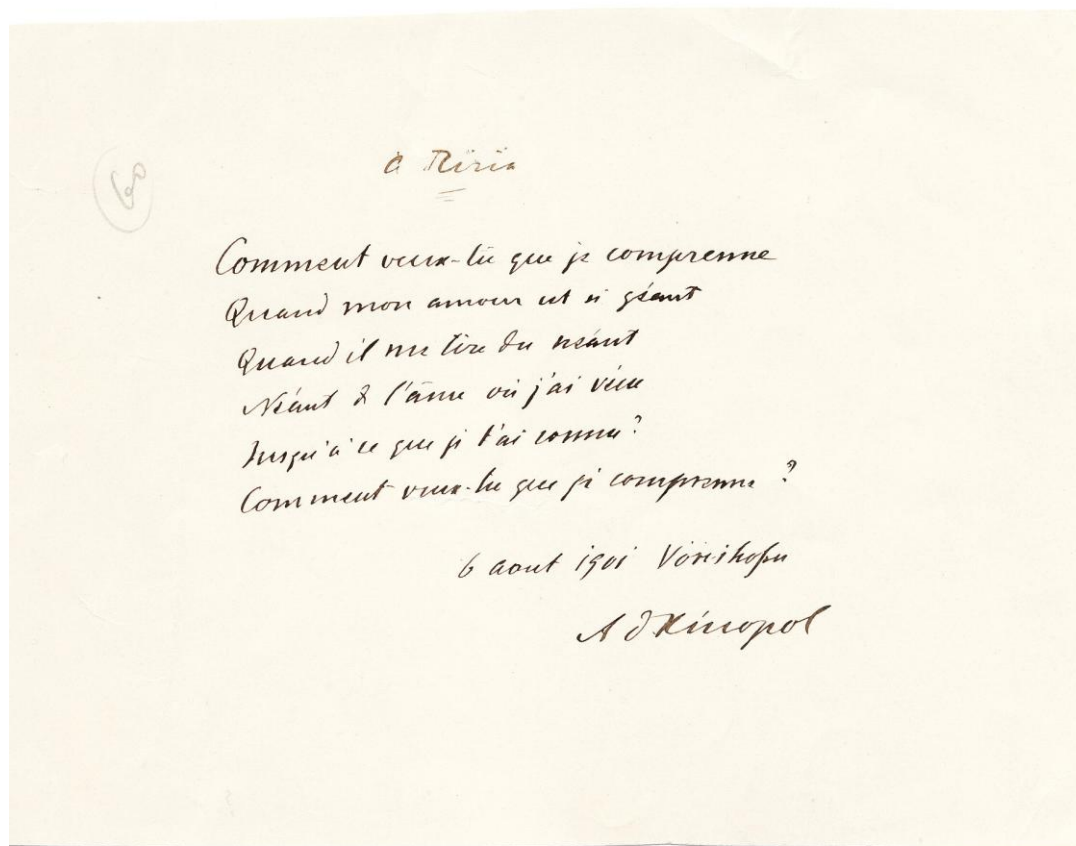 60
a Riria
Comment veux-tu que je comprenne
Quand mon amour est si géant
Quand il me tire du néant
Néant de l'âme où j'ai vécu
Jusqu'à ce que je t'ai connu?
Comment veux-tu que je comprenne?
6 aout 1901 Vörishofen
A D Xénopol